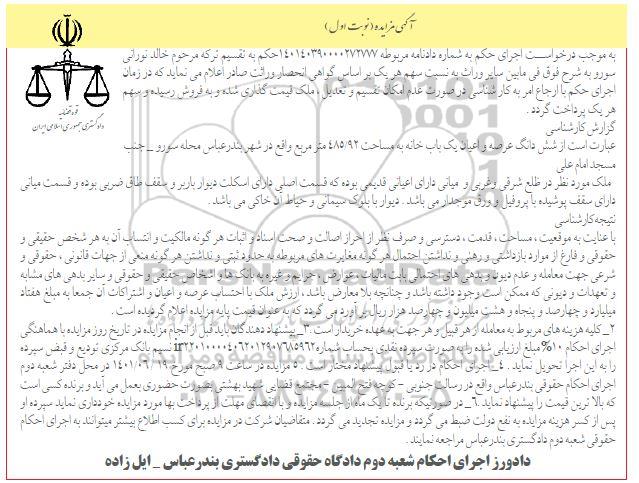 آگهی مزایده (نوبت اول)
قوه قضائیه
دادگستری جمهوری اسلامی ایران
به موجب درخواست اجرای حکم به شماره دادنامه مربوطه ۱۴۰۱۴۰۳۹۰۰۰۰۲۷۲۷۷۷ حکم به تقسیم ترکه مرحوم خالد نورانی
سورو به شرح فوق فی مابین سایر وراث به نسبت سهم هر یک بر اساس گواهی انحصار وراثت صادر اعلام می نماید که در زمان
اجرای حکم با ارجاع امر به کارشناسی در صورت عدم امکان تقسیم و تعدیل ، ملک قیمت گذاری شده و به فروش رسیده و سهم
هر یک پرداخت گردد .
گزارش کارشناسی
عبارت است از شش دانگ عرصه و اعیان یک باب خانه به مساحت ۴۸۵/۹۲ متر مربع واقع در شهر بندرعباس محله سورو _ جنب
مسجد امام علی
ملک مورد نظر در ظلع شرقی وغربی و میانی دارای اعیانی قدیمی بوده که قسمت اصلی دارای اسکلت دیوار باربر و سقف طاق ضربی بوده و قسمت میانی
دارای سقف پوشیده با پروفیل و ورق موجدار می باشد . دیوار با بلوک سیمانی و حیاط آن خاکی می باشد .
نتیجه کارشناسی
با عنایت به موقعیت ، مساحت ، قدمت ، دسترسی و صرف نظر از احراز اصالت و صحت اسناد و اثبات هر گونه مالکیت و انتساب آن به هر شخص حقیقی و
حقوقی و فارغ از موارد بازداشتی و رهنی و نداشتن احتمال هر گونه مغایرت های مربوطه به حدود ثبتی و نداشتن هر گونه منعی از جهات قانونی ، حقوقی و
شرعی جهت معامله و عدم دیون و بدهی های احتمالی بابت مالیات ،عوارض ، جرایم و غیره به بانک ها و اشخاص حقیقی و حقوقی و سایر بدهی های مشابه
و تعهدات و دیونی که ممکن است وجود داشته باشد و چنانچه بلا معارض باشد ، ارزش ملک با احتساب عرصه و اعیان و اشتراکات آن جمعا به مبلغ هفتاد
میلیارد و چهارصد و پنجاه و هشت میلیون و چهارصد هزار ریال بر آورد می گردد که به عنوان قیمت پایه مزایده اعلام گردیده است .
۲_کلیه هزینه های مربوط به معامله از هر قبیل و هر جهت به عهده خریدار است .۳_ پیشنهاد دهندگان باید قبل از انجام مزایده در تاریخ روز مزایده با هماهنگی
اجرای احکام ۱۰% مبلغ ارزیابی شده را به صورت سپرده نقدی بحساب شماره
نسیم بانک مرکزی تودیع و قبض سپرده
را به این اجرا تحویل نماید . ۴_ اجرای احکام در رد یا قبول پیشنهاد مختار است . ۵ مزایده در ساعت ۹ صبح مورخ ۱۴۰۱/۰۶/۱۹ در محل دفتر شعبه دوم
اجرای احکام حقوقی بندرعباس واقع در رسالت جنوبی - کوچه فتح المبین - مجتمع قضایی شهید بهشتی بصورت حضوری بعمل می آید و برنده کسی است
که بالا ترین قیمت را پیشنهاد نماید .۶_ در صورتیکه برنده تا یک ماه از جلسه مزایده و با انقضای مهلت از پرداخت بها مورد مزایده خودداری نماید سپرده او
پس از کسر هزینه مزایده به نفع دولت ضبط می گردد و مزایده تجدید می گردد . متقاضیان شرکت در مزایده برای کسب اطلاع بیشتر میتوانند به اجرای احکام
حقوقی شعبه دوم دادگستری بندرعباس مراجعه نمایند .
دادورز اجرای احکام شعبه دوم دادگاه حقوقی دادگستری بندرعباس _ ایل زاده